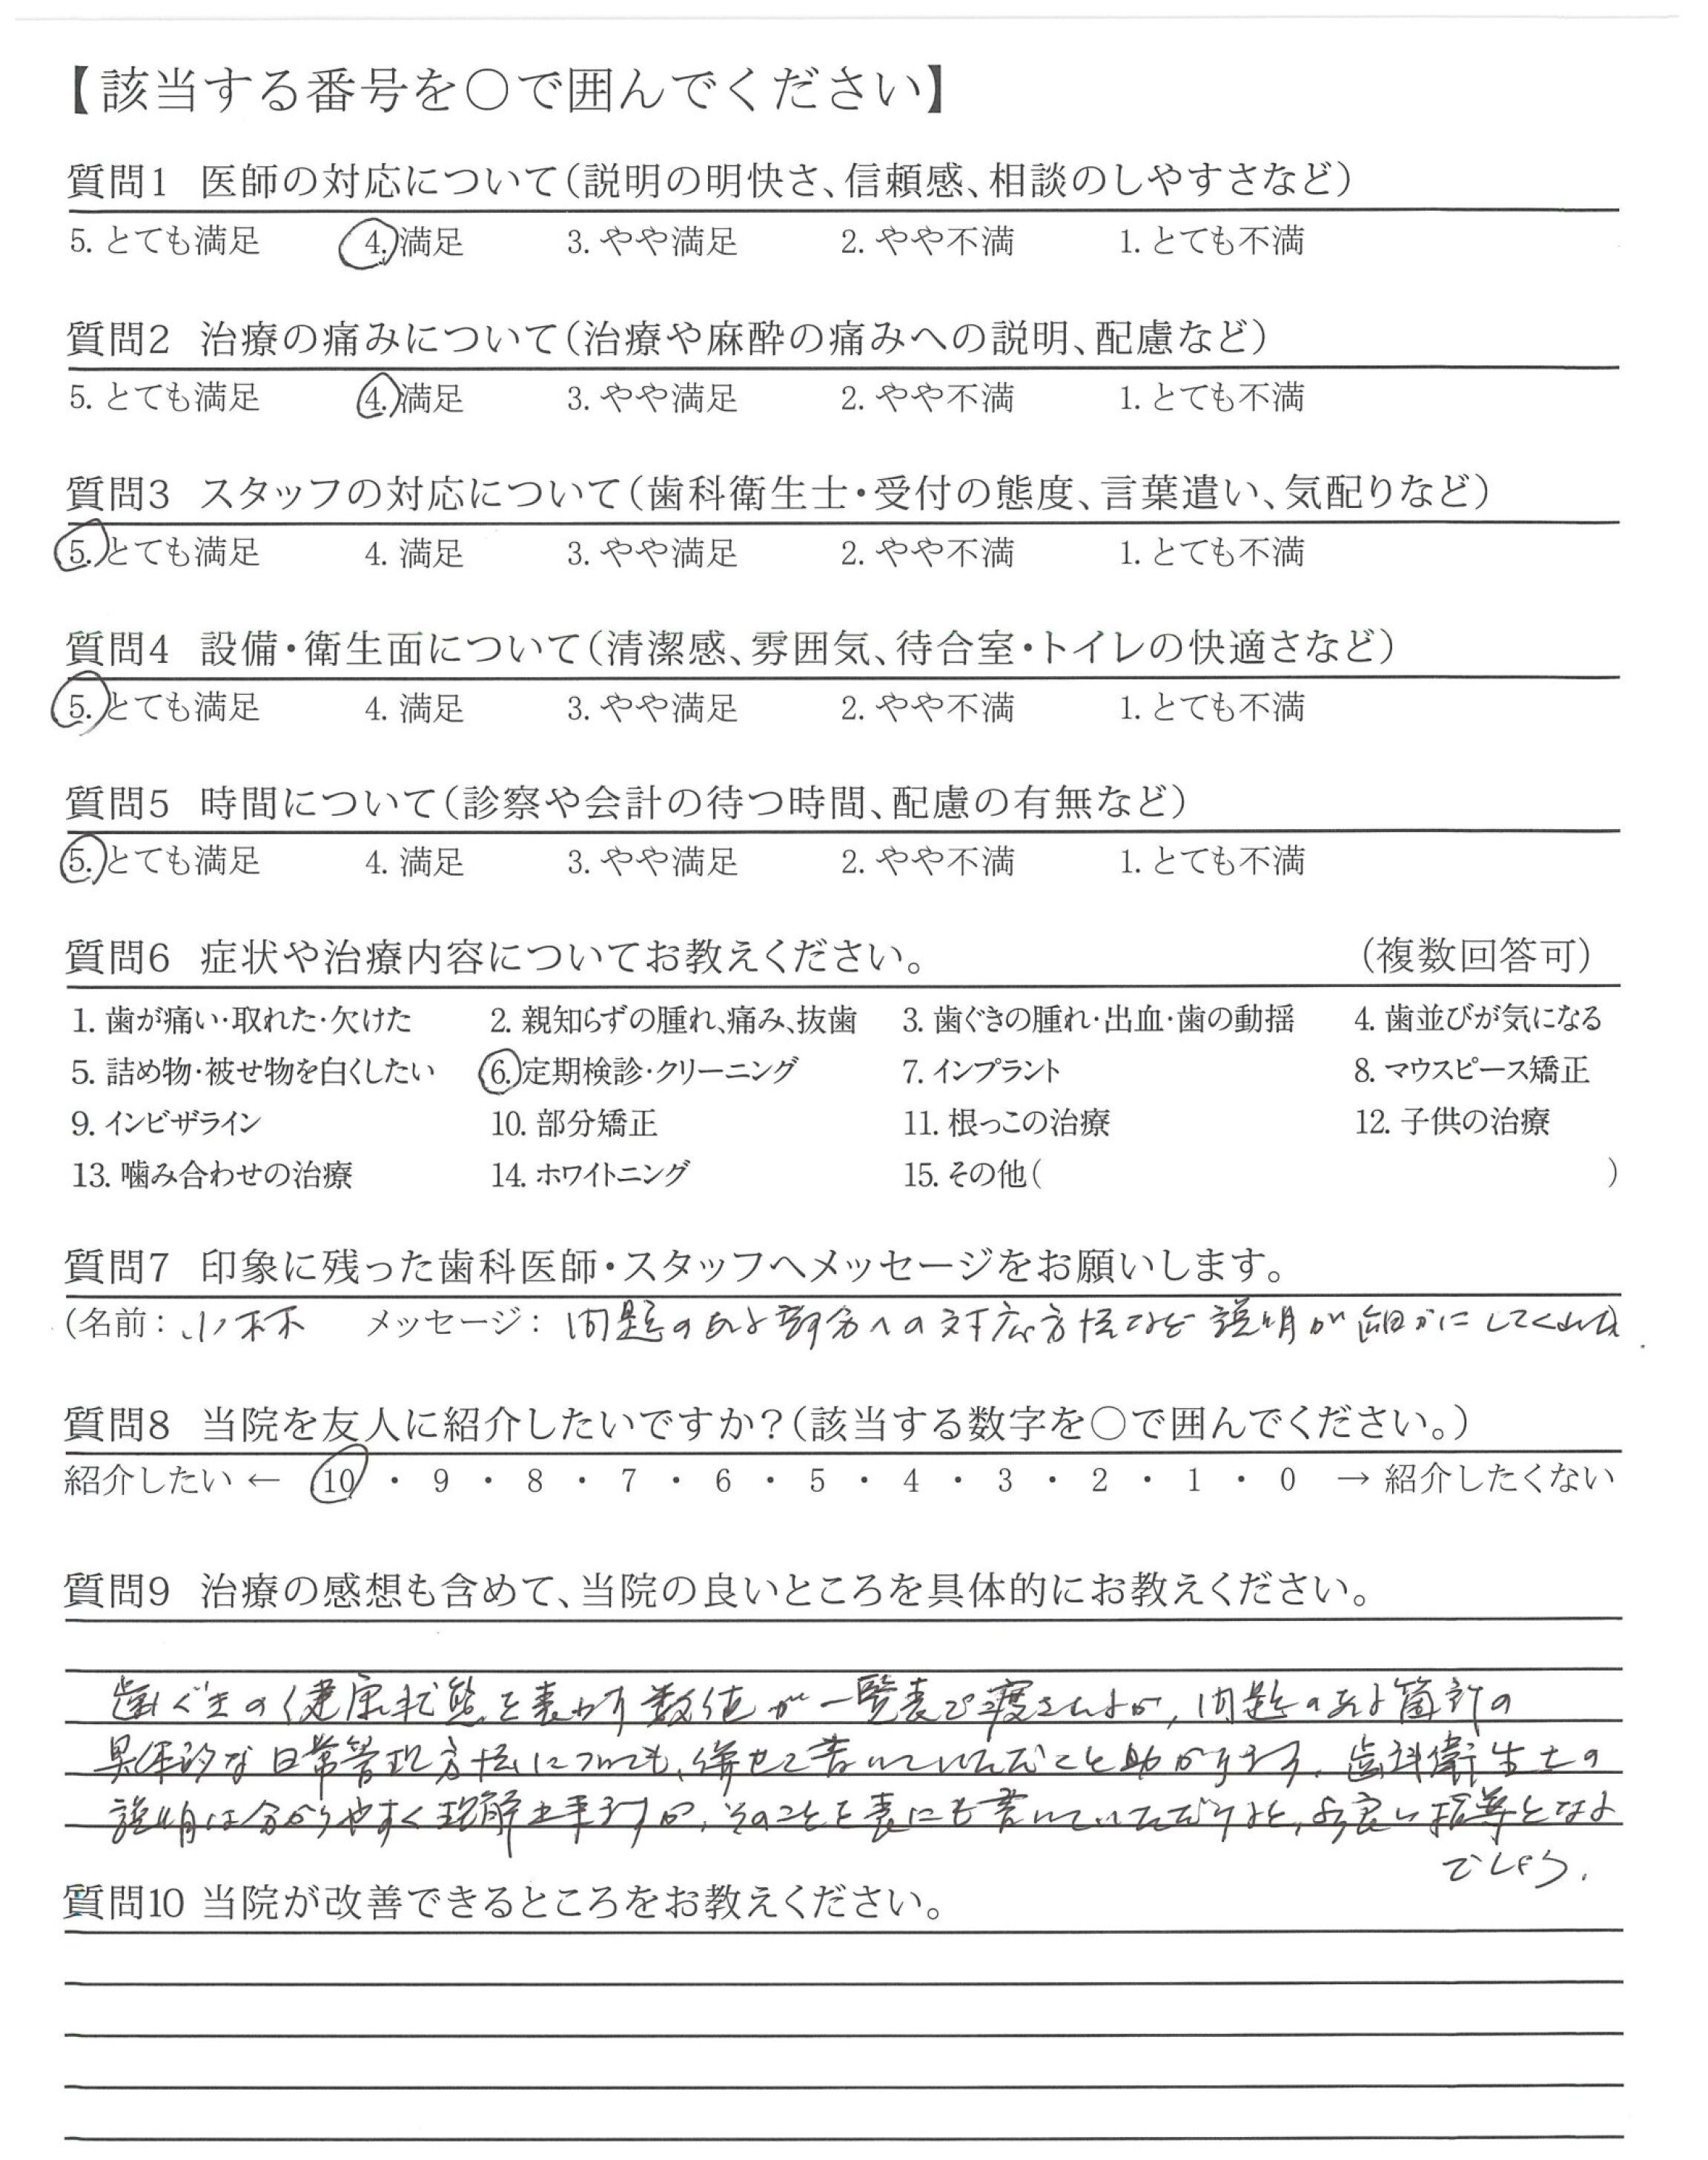 【該当する番号を〇で囲んでください】
質問1 医師の対応について(説明の明快さ、信頼感、相談のしやすさなど)
5. とても満足 4. 満足 3. やや満足 2. やや不満 1. とても不満
質問2 治療の痛みについて(治療や麻酔の痛みへの説明、配慮など)
5. とても満足 4. 満足 3. やや満足 2. やや不満 1. とても不満
質問3 スタッフの対応について(歯科衛生士・受付の態度、言葉遣い、気配りなど)
5. とても満足 4. 満足 3. やや満足 2. やや不満 1. とても不満
質問4 設備・衛生面について(清潔感、雰囲気、待合室・トイレの快適さなど)
5. とても満足 4. 満足 3. やや満足 2. やや不満 1. とても不満
質問5 時間について(診察や会計の待つ時間、配慮の有無など)
5. とても満足 4. 満足 3. やや満足 2. やや不満 1. とても不満
質問6 症状や治療内容についてお教えください。 (複数回答可)
1. 歯が痛い・取れた・欠けた 2. 親知らずの腫れ、痛み、抜歯 3. 歯ぐきの腫れ・出血・歯の動揺 4. 歯並びが気になる
5. 詰め物・被せ物を白くしたい 6. 定期検診・クリーニング 7. インプラント 8. マウスピース矯正
9. インビザライン 10. 部分矯正 11. 根っこの治療 12. 子供の治療
13. 噛み合わせの治療 14. ホワイトニング 15. その他( )
質問7 印象に残った歯科医師・スタッフへメッセージをお願いします。
(名前: 小林 メッセージ: 問題のある部分への対応方法など説明が細かにしてくれた
質問8 当院を友人に紹介したいですか?(該当する数字を〇で囲んでください。)
紹介したい ← 10 ・ 9 ・ 8 ・ 7 ・ 6 ・ 5 ・ 4 ・ 3 ・ 2 ・ 1 ・ 0 → 紹介したくない
質問9 治療の感想も含めて、当院の良いところを具体的にお教えください。
歯ぐきの健康状態を表わす数値が一覧表で渡されるが、問題のある箇所の
具体的な日常管理方法についても、併せて書いていただくと助かります。歯科衛生士の
説明は分かりやすく理解出来ますが、そのことを表にも書いていただけると、より良い指導となる
でしょう.
質問10 当院が改善できるところをお教えください。